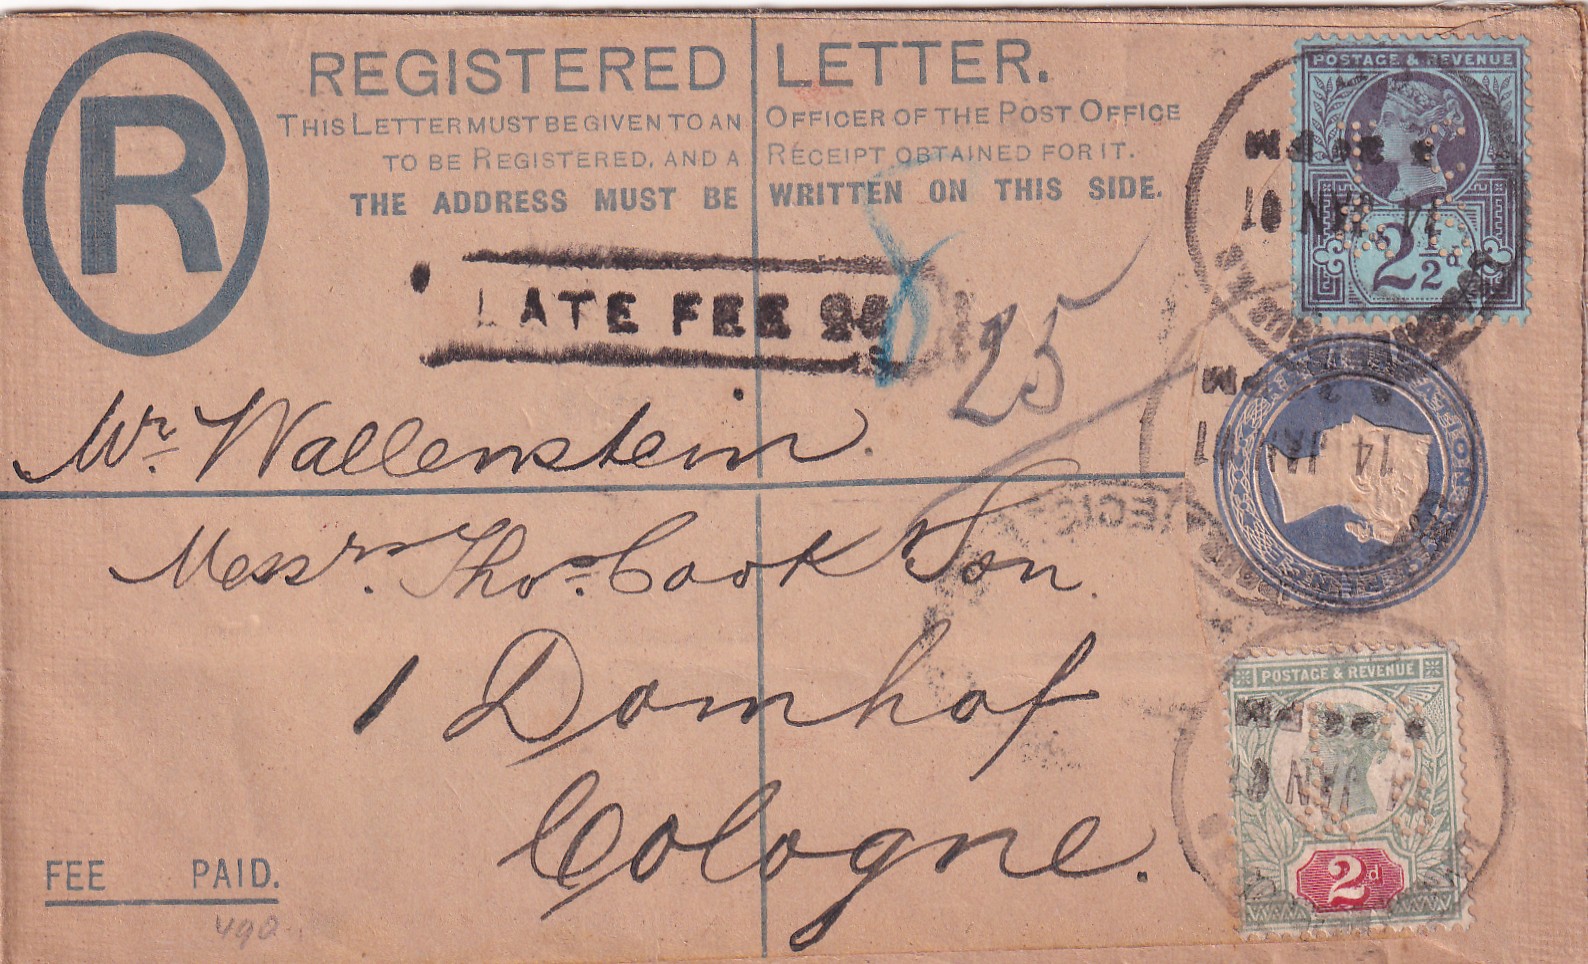 R
REGISTERED LETTER.
THIS LETTER MUST BE GIVEN TO AN OFFICER OF THE POST OFFICE
TO BE REGISTERED, AND A RECEIPT OBTAINED FOR IT.
THE ADDRESS MUST BE WRITTEN ON THIS SIDE.
POSTAGE & REVENUE
PM
14 JAN 01
2½d
LATE FEE
25
PM
14 JAN 01
Mr. Wallenstein.
Messrs. Thos. Cook & Son.
1 Domhof
Cologne.
POSTAGE & REVENUE
PM
JAN
2d
FEE PAID.
490